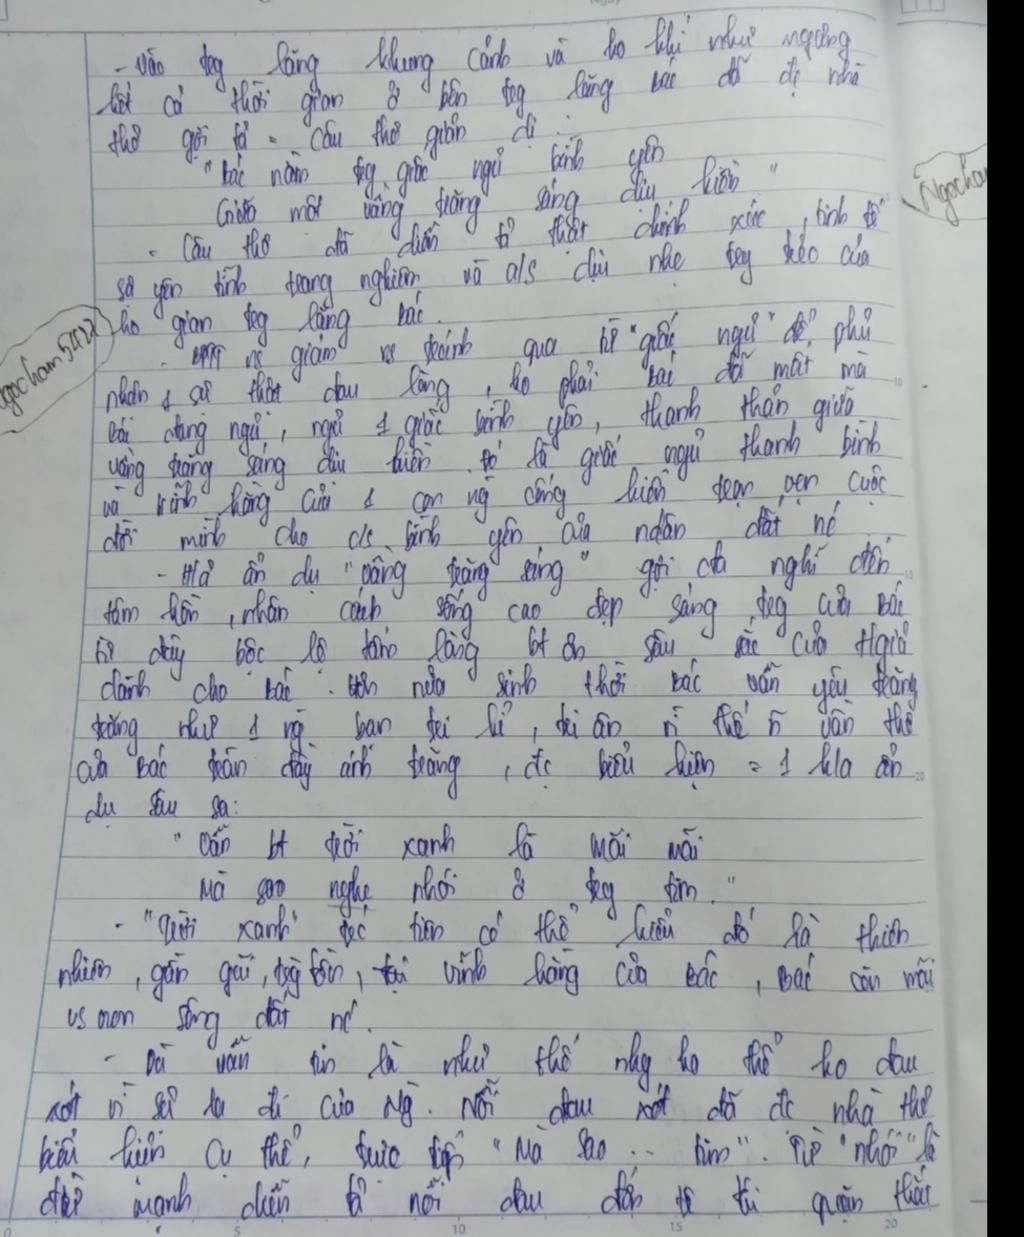 - vào trg lăng khung cảnh và ko khí như ngưng
kết cả thời gian ở bên trg lăng Bác đã đc nhà
thơ gợi tả = câu thơ giản dị :
"Bác nằm trg giấc ngủ bình yên
Giữa một vầng trăng sáng dịu hiền"
- Câu thơ đã diễn tả thật chính xác, tinh tế
sự yên tĩnh trang nghiêm và a/s dịu nhẹ trg trẻo của
ko gian trg lăng Bác.
- ns giảm ns tránh qua từ "giấc ngủ" để phủ
nhận 1 sự thật đau lòng, ko phải Bác đã mất mà
Bác đang ngủ, ngủ 1 giấc bình yên, thanh thản giữa
vầng trăng sáng dịu hiền. Đó là giấc ngủ thanh bình
và vĩnh hằng của 1 con ng cống hiến trọn vẹn cuộc
đời mình cho c/s bình yên của ndân đất nc
- H/a ẩn dụ "vầng trăng sáng" gợi cta nghĩ đến
tâm hồn, nhân cách sống cao đẹp sáng trg của Bác
từ đấy bộc lộ tấm lòng bt ơn sâu sắc của tgiả
dành cho Bác. Hơn nữa sinh thời Bác vẫn yêu trăng
trăng như 1 ng bạn tri kỉ, tri ân vì thế n vần thơ
của Bác tràn đầy ánh trăng, đc biểu hiện = 1 h/a ẩn
dụ sâu sa:
"Vẫn bt trời xanh là mãi mãi
Mà sao nghe nhói ở trg tim."
- "Trời xanh" trc tiên có thể hiểu đó là thiên
nhiên, gần gũi, trg tồn, vĩnh hằng của Bác, Bác còn mãi
vs non sông đất nc.
- Dù vẫn tin là như thế nhg ko thể ko đau
xót vì sự ra đi của Ng. Nỗi đau xót đã đc nhà thơ
biểu hiện cụ thể, trực tiếp "Mà sao ... tim". Từ "nhói" là
đtừ mạnh diễn tả nỗi đau đến tê tái quặn thắt